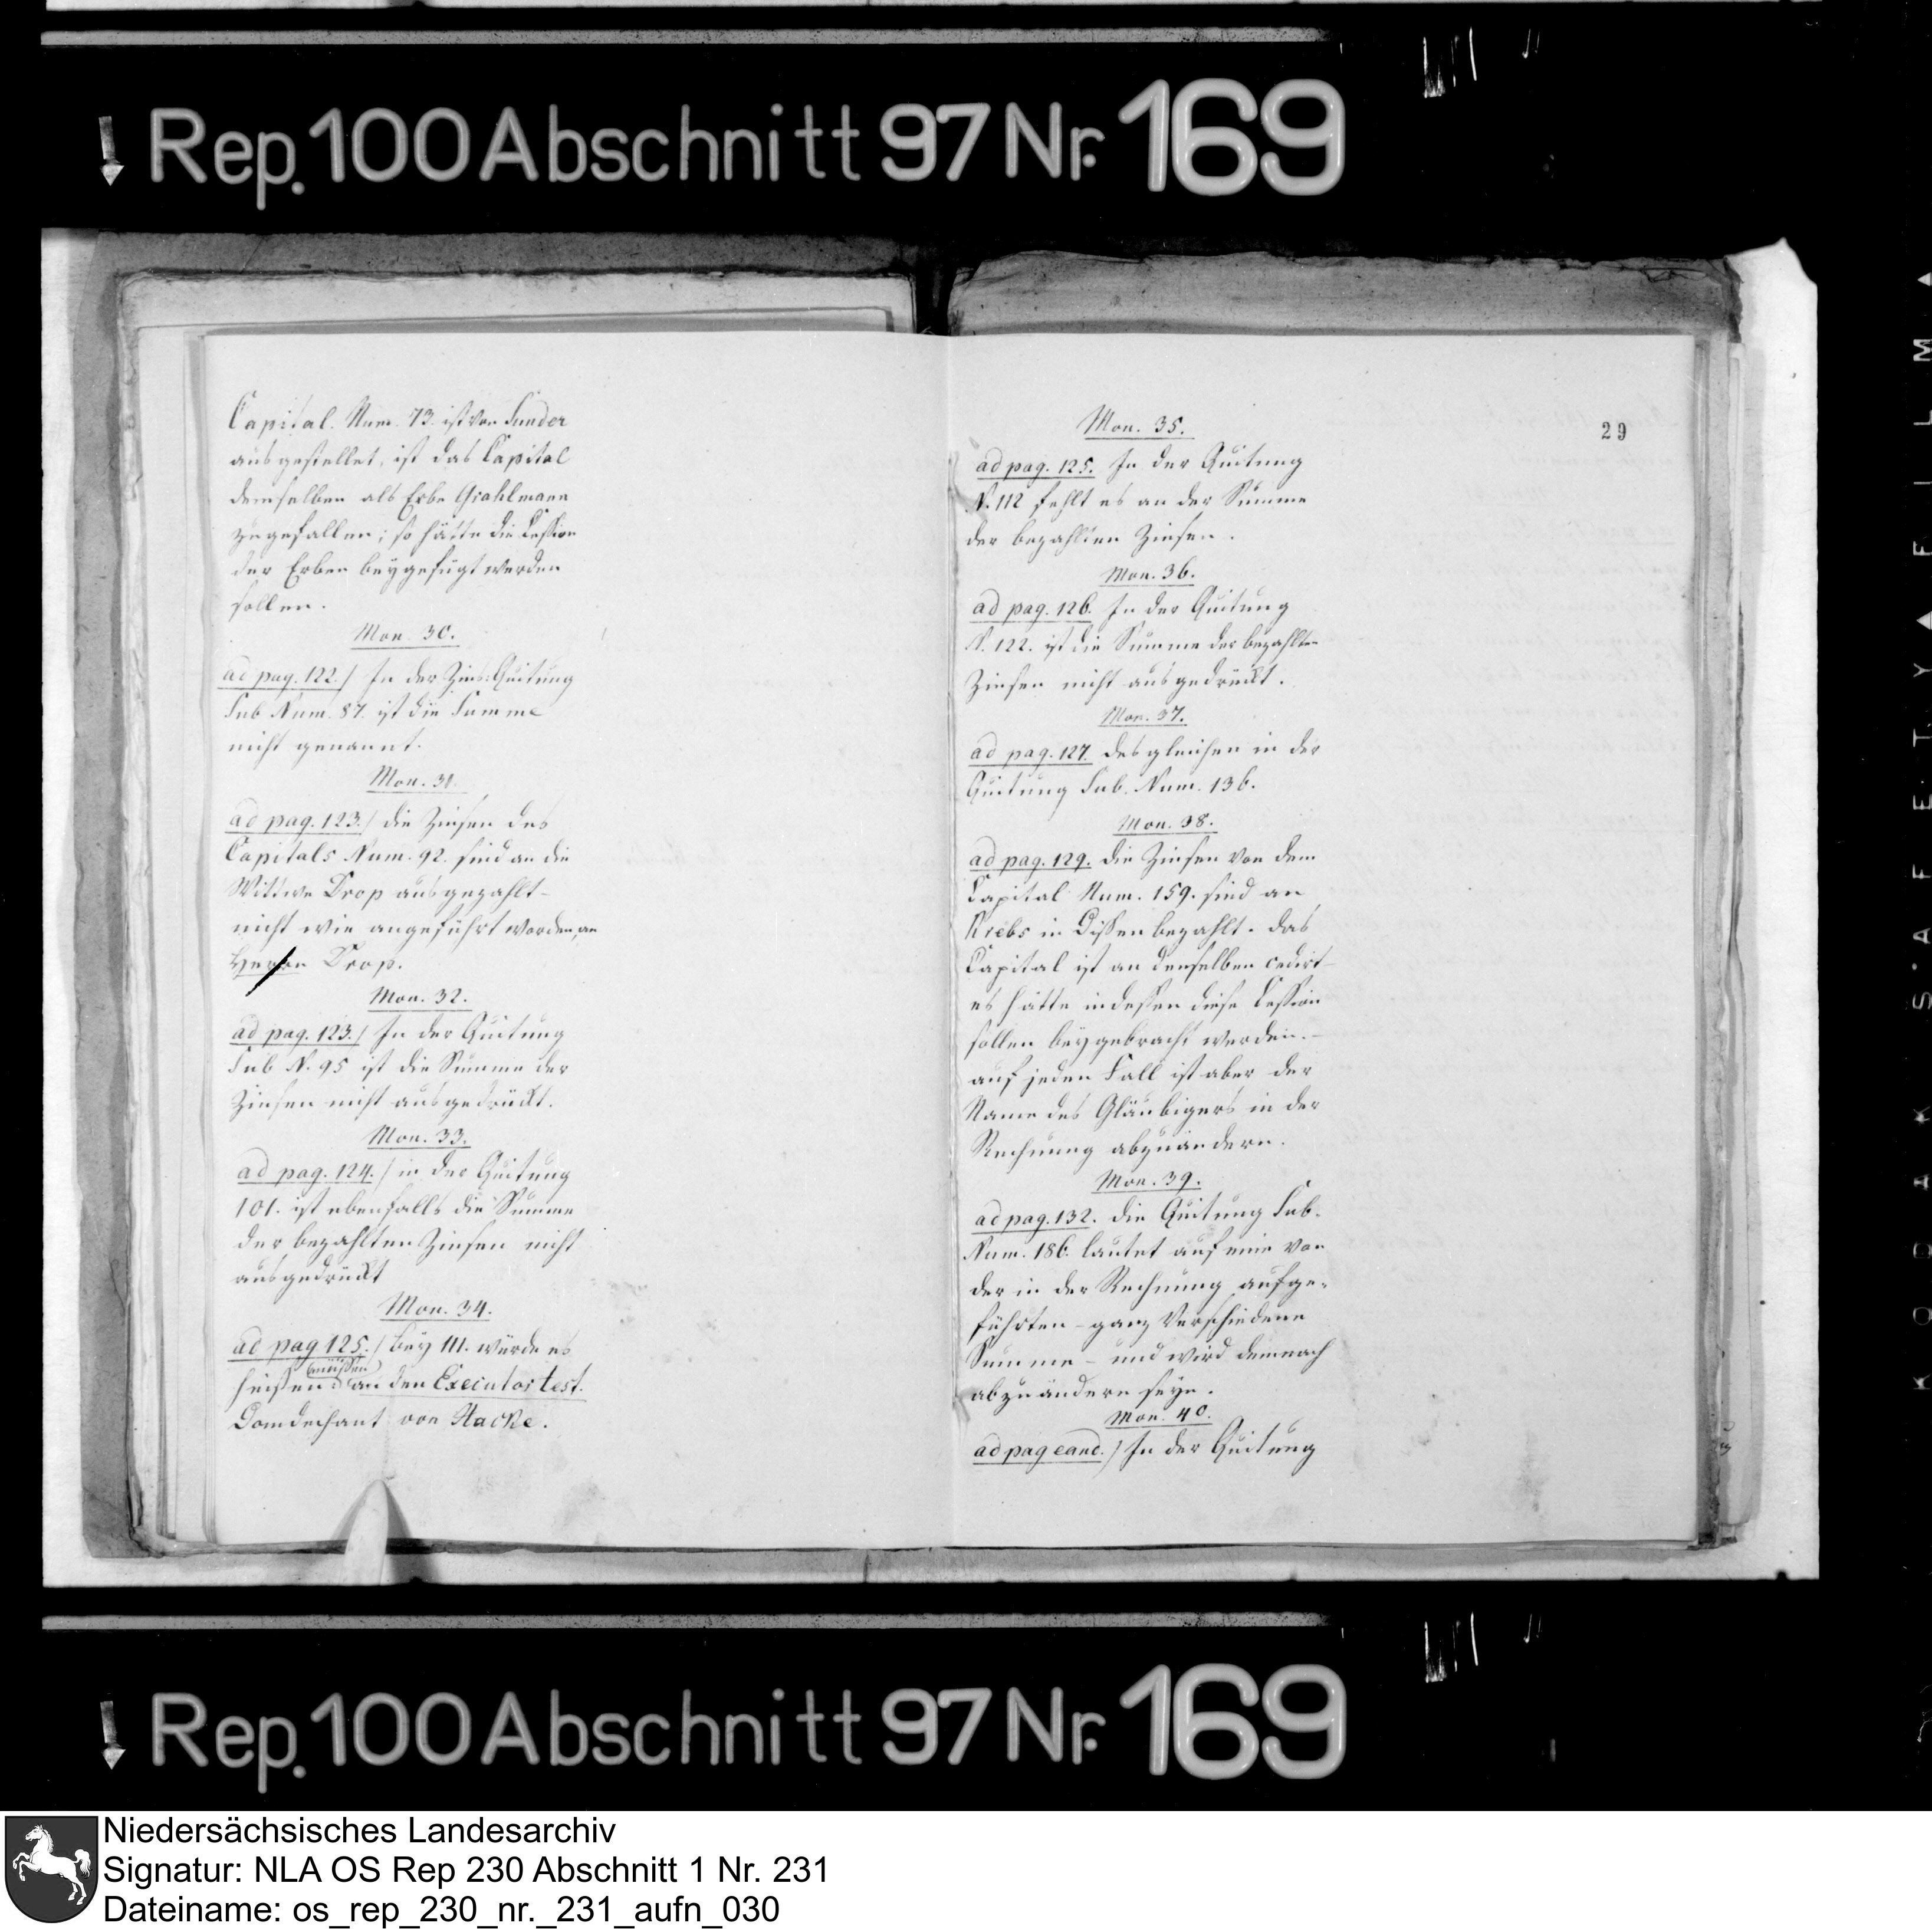 Rep. 100 Abschnitt 97 Nr. 169
Capital. Num. 73. ist von Sunder
ausgestellet, ist das Capital
demselben als Erbe Grahlmann
zugefallen; so hätte die Cession
der Erben beygefügt werden
sollen.
Mon. 30.
ad pag. 122./ In der Zins-Quitung
Sub Num. 87. ist die Summe
nicht genannt.
Mon. 31.
ad pag. 123./ die Zinsen des
Capitals Num. 92. sind an die
Wittwe Drop ausgezahlt -
nicht wie angeführt worden, an
Herrn Drop.
Mon. 32.
ad pag. 123./ In der Quitung
Sub N. 95 ist die Summe der
Zinsen nicht ausgedrückt.
Mon. 33.
ad pag. 124./ in der Quitung
101. ist ebenfalls die Summe
der bezahlten Zinsen nicht
ausgedrückt
Mon. 34.
ad pag 125./ bey 111. würde es
müssen
heißen: an den Executor test.
Domdechant von Hacke.
29
Mon. 35.
ad pag. 125. In der Quitung
N. 112 fehlt es an der Summe
der bezahlten Zinsen.
Mon. 36.
ad pag. 126. In der Quitung
N. 122. ist die Summe der bezahlten
Zinsen nicht ausgedrückt.
Mon. 37.
ad pag. 127. desgleichen in der
Quitung Sub. Num. 136.
Mon. 38.
ad pag. 129. die Zinsen von dem
Capital Num. 159. sind an
Krebs in Dissen bezahlt. das
Capital ist an denselben cedirt -
es hätte indessen diese Cession
sollen beygebracht werden. -
auf jeden Fall ist aber der
Name des Gläubigers in der
Rechnung abzuändern.
Mon. 39.
ad pag. 132. die Quitung Sub.
Num. 186. lautet auf eine von
der in der Rechnung aufge-
führten - ganz verschiedene
Summe - und wird demnach
abzuändern seyn.
Mon. 40.
ad pag eand./ In der Quitung
KODAK SAFETY FILM
Rep. 100 Abschnitt 97 Nr. 169
Niedersächsisches Landesarchiv
Signatur: NLA OS Rep 230 Abschnitt 1 Nr. 231
Dateiname: os_rep_230_nr._231_aufn_030